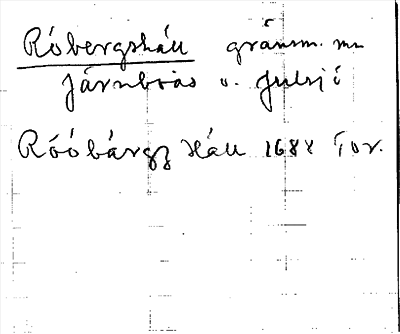 Róbergshäll gränsm. m.
Järnboås o. Hulsjö
Róóbärgz Häll 1688 For.